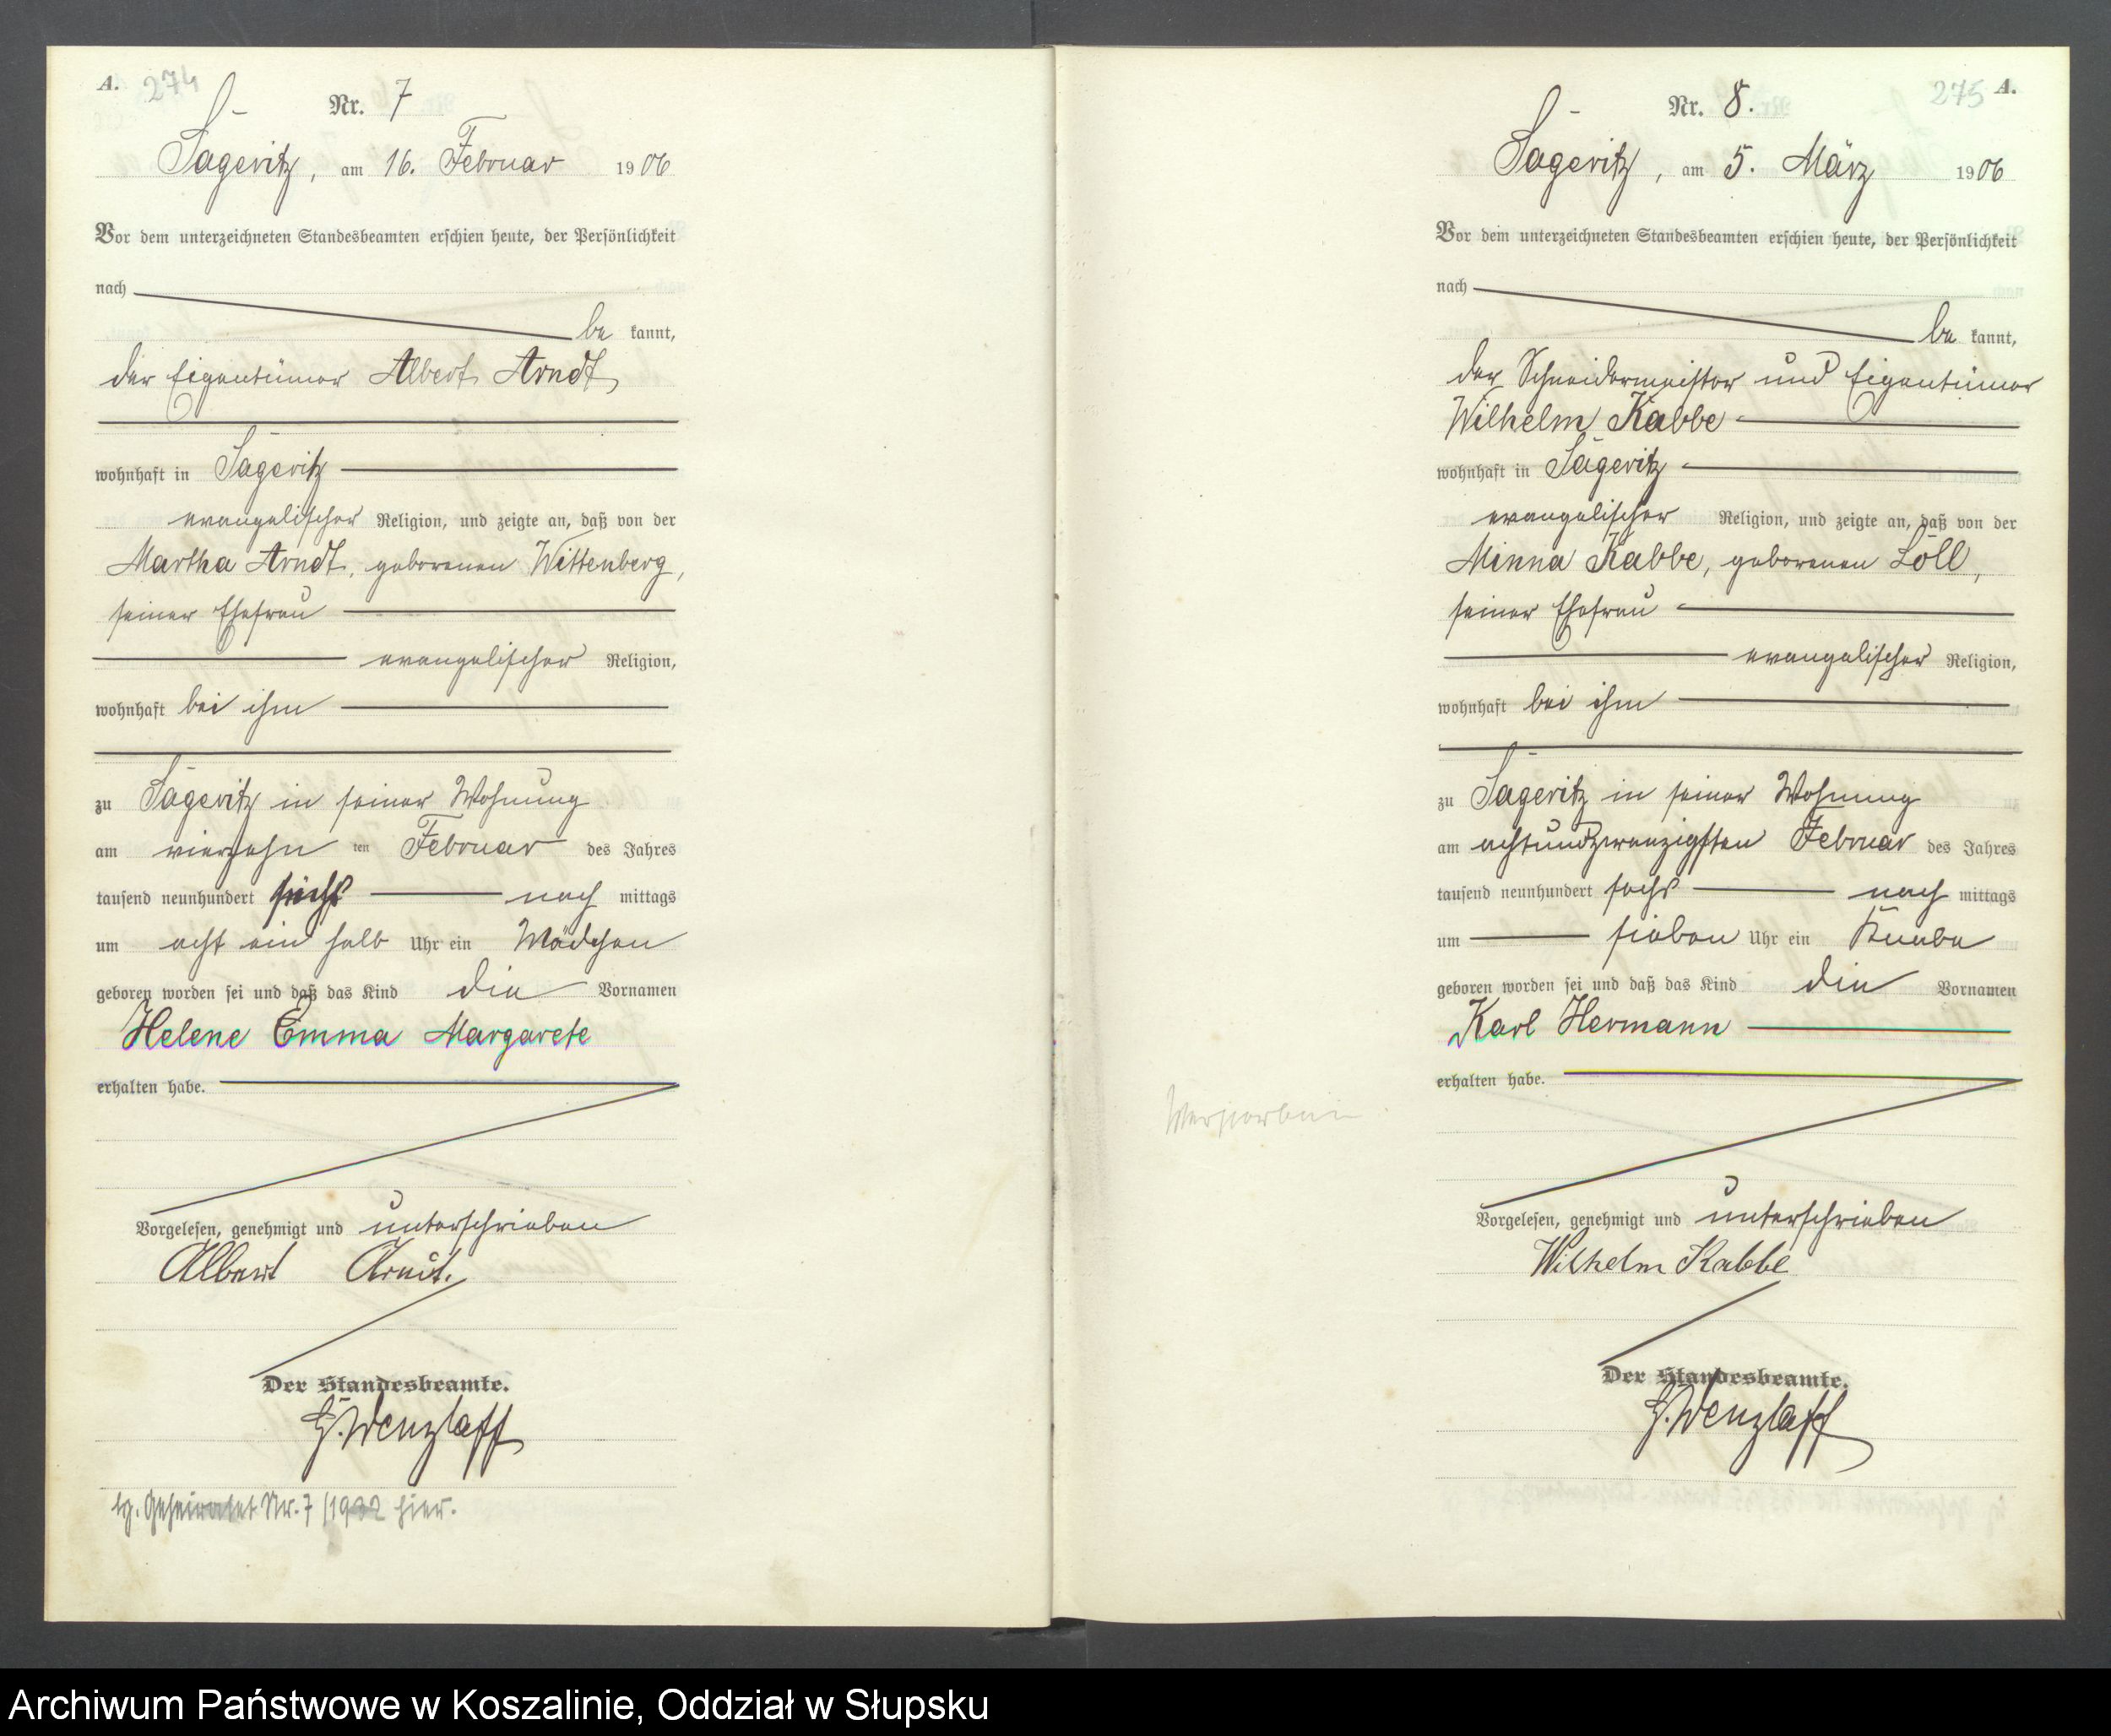 A. 274
Nr. 7
Sageritz, am 16. Februar 1906
Vor dem unterzeichneten Standesbeamten erschien heute, der Persönlichkeit
nach
be kannt,
der Eigentümer Albert Arndt,
wohnhaft in Sageritz
evangelischer Religion, und zeigte an, daß von der
Martha Arndt, geborenen Wittenberg,
seiner Ehefrau
evangelischer Religion,
wohnhaft bei ihm
zu Sageritz in seiner Wohnung
am vierzehn ten Februar des Jahres
tausend neunhundert sechs nach mittags
um acht ein halb Uhr ein Mädchen
geboren worden sei und daß das Kind die Vornamen
Helene Emma Margarete
erhalten habe.
Vorgelesen, genehmigt und unterschrieben
Albert Arndt.
Der Standesbeamte.
Wenzlaff
Geheiratet Nr. 7/1932 hier.
275 A.
Nr. 8.
Sageritz, am 5. März 1906
Vor dem unterzeichneten Standesbeamten erschien heute, der Persönlichkeit
nach
be kannt,
der Schneidermeister und Eigentümer
Wilhelm Kabbe
wohnhaft in Sageritz
evangelischer Religion, und zeigte an, daß von der
Minna Kabbe, geborenen Löll,
seiner Ehefrau
evangelischer Religion,
wohnhaft bei ihm
zu Sageritz in seiner Wohnung
am achtundzwanzigsten Februar des Jahres
tausend neunhundert sechs nach mittags
um sieben Uhr ein Knabe
geboren worden sei und daß das Kind die Vornamen
Karl Hermann
erhalten habe.
Vorgelesen, genehmigt und unterschrieben
Wilhelm Kabbe
Der Standesbeamte.
Wenzlaff
Archiwum Państwowe w Koszalinie, Oddział w Słupsku